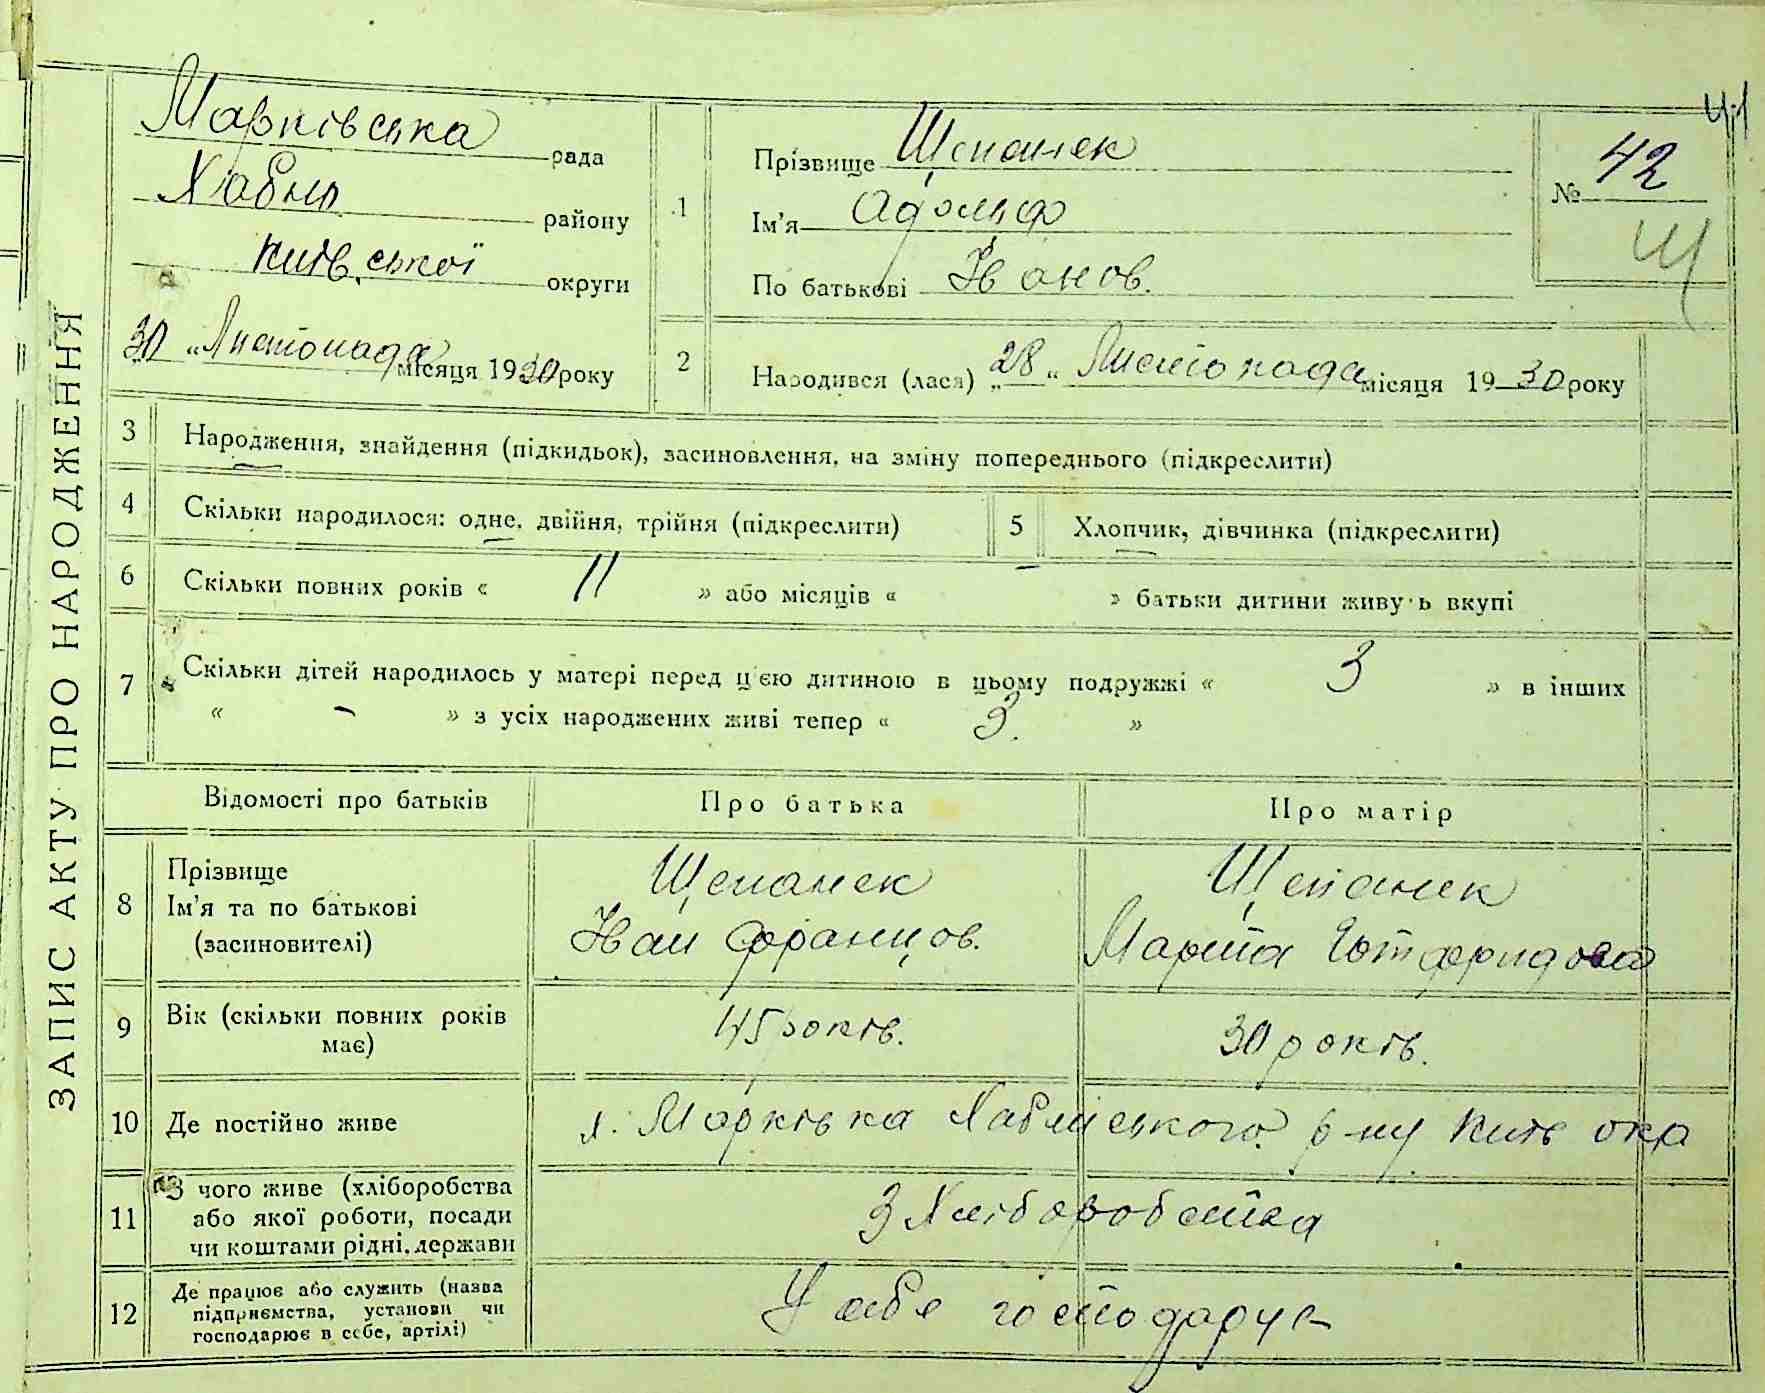 ЗАПИС АКТУ ПРО НАРОДЖЕННЯ
Марківська рада
Хабно району
Київ.ської округи
30 „Листопада місяця 1930 року
41
1
Прізвище Щепанек
Ім'я Адольф
По батькові Іванов.
№ 42
Щ
2
Народився (лася) „28“ Листопада місяця 1930 року
3 Народження, знайдення (підкидьок), засиновлення, на зміну попереднього (підкреслити)
4 Скільки народилося: одне, двійня, трійня (підкреслити)
5 Хлопчик, дівчинка (підкреслити)
6 Скільки повних років « 11 » або місяців « – » батьки дитини живуть вкупі
7 Скільки дітей народилось у матері перед цією дитиною в цьому подружжі « 3 » в інших
« – » з усіх народжених живі тепер « 3. »
Відомості про батьків Про батька Про матір
8 Прізвище
Ім'я та по батькові
(засиновителі)
Щепанек
Іван Францов.
Щепанек
Марта Готфридова
9 Вік (скільки повних років
має)
45 років.
30 років.
10 Де постійно живе
Марківка Хабнського р-ну Київ окр
11 З чого живе (хліборобства
або якої роботи, посади
чи коштами рідні, держави
З Хліборобства
12 Де працює або служить (назва
підприємства, установи чи
господарює в себе, артілі)
У себе господарує